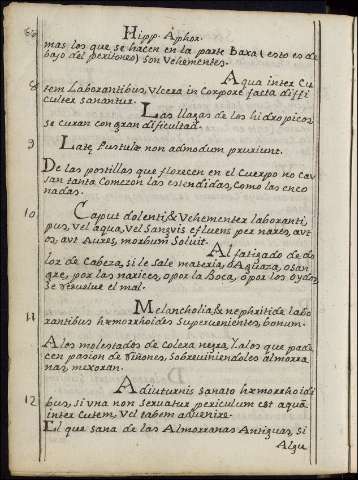 Hipp. Aphor.
mas los que se hacen en la parte Baxa (esto es de
bajo del peritoneo) son Vehementes.
Aqua inter Cu
8 tem Laborantibus, Ulcera in Corpore facta diffi
culter sanantur.
Las llagas de los hidropicos
se curan con gran dificultad.
9 Latę Pustulæ non admodum pruriunt.
De las postillas que florecen en el Cuerpo no cau
san tanta Comezon las estendidas, Como las enco
nadas.
10 Caput dolenti, & Vehementer laboranti
pus, vel aqua, Vel Sanguis efluens per nares, aut
os, aut Aures, morbum Soluit.
Al fatigado de do
lor de Cabeza, si le sale materia, o Aguaza, o san
gre, por las narices, o por la Boca, o por los oydos
se resuelue el mal.
11 Melancholia, & nephritide labo
rantibus hæmorrhoides Superuenientes, bonum.
A los molestados de Colera negra, y a los que pade
cen pasion de riñones, Sobreuiniendoles almorra
nas, mexoran.
12 A diuturnis Sanato hæmorrhoidi
bus, si una non Seruatur periculum est aquā
inter Cutem, Vel tabem aduenire.
El que sana de las Almorranas Antiguas, si
Algu